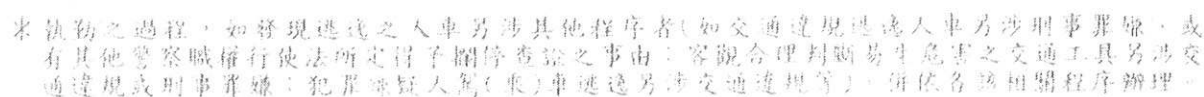 ※執勤之過程,如發現逃逸之人車另涉其他程序者(如交通違規逃逸人車另涉刑事罪嫌,或
有其他警察職權行使法所定得予攔停查證之事由;客觀合理判斷易生危害之交通工具另涉交
通違規或刑事罪嫌;犯罪嫌疑人駕(乘)車逃逸另涉交通違規等),併依各該相關程序辦理。